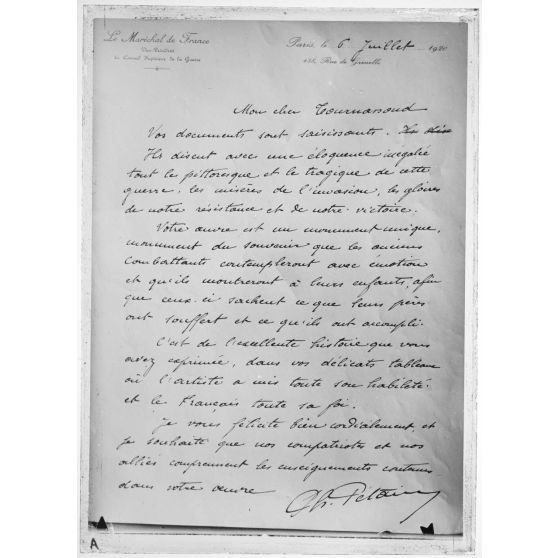 Le Maréchal de France
Vice-Président
du Conseil Supérieur de la Guerre
Paris, le 6 Juillet 1920
4 bis, Rue de Grenelle
Mon cher Tournassoud
Vos documents sont saisissants.
Ils disent avec une éloquence inégalée
tout le pittoresque et le tragique de cette
guerre, les misères de l'invasion, les gloires
de notre résistance et de notre victoire.
Votre œuvre est un monument unique,
monument du souvenir que les anciens
combattants contempleront avec émotion
et qu'ils montreront à leurs enfants, afin
que ceux-ci sachent ce que leurs pères
ont souffert et ce qu'ils ont accompli.
C'est de l'excellente histoire que vous
avez exprimée, dans vos délicats tableaux
où l'artiste a mis toute son habileté
et le Français toute sa foi.
Je vous félicite bien cordialement, et
je souhaite que nos compatriotes et nos
alliés comprennent les enseignements contenus
dans votre œuvre
Ph. Pétain
A